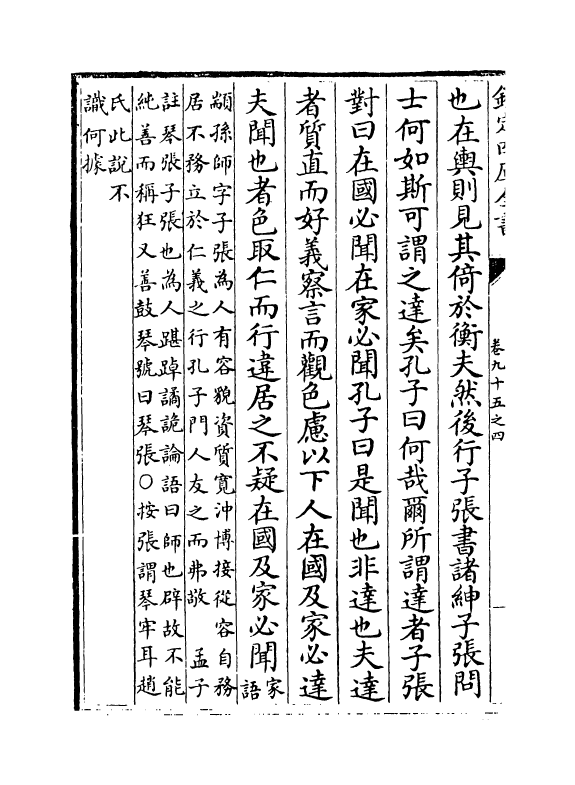 欽定四庫全書
卷九十五之四
也在輿則見其倚於衡夫然後行子張書諸紳子張問
士何如斯可謂之達矣孔子曰何哉爾所謂達者子張
對曰在國必聞在家必聞孔子曰是聞也非達也夫達
者質直而好義察言而觀色慮以下人在國及家必達
夫聞也者色取仁而行違居之不疑在國及家必聞
家
語
顓孫師字子張為人有容貌資質寛沖博接從容自務
居不務立於仁義之行孔子門人友之而弗敬　孟子
註琴張子張也為人踸踔譎詭論語曰師也辟故不能
純善而稱狂又善鼓琴號曰琴張○按張謂琴牢耳趙
氏此說不
識何據